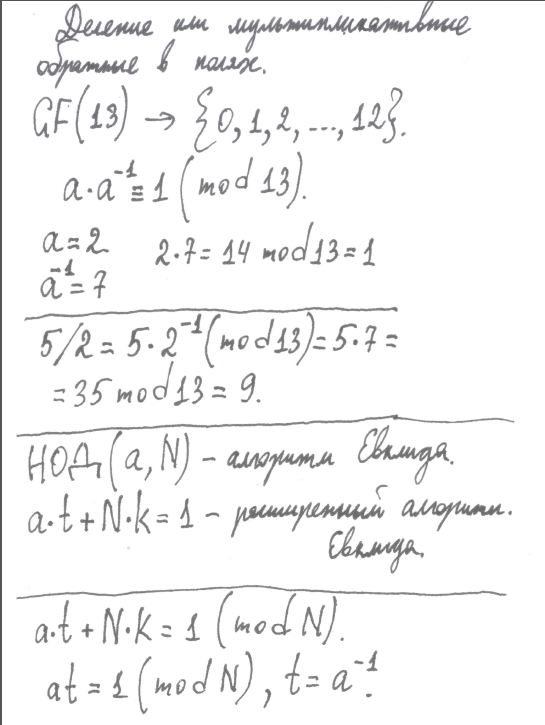 Деление или мультипликативные
обратные в полях.
GF(13) → {0, 1, 2, ..., 12}.
a·a⁻¹ ≡ 1 (mod 13).
a = 2 2·7 = 14 mod 13 = 1
a⁻¹ = 7
5/2 = 5·2⁻¹ (mod 13) = 5·7 =
= 35 mod 13 = 9.
НОД (a, N) – алгоритм Евклида.
a·t + N·k = 1 – расширенный алгоритм.
Евклида.
a·t + N·k = 1 (mod N).
at = 1 (mod N), t = a⁻¹.